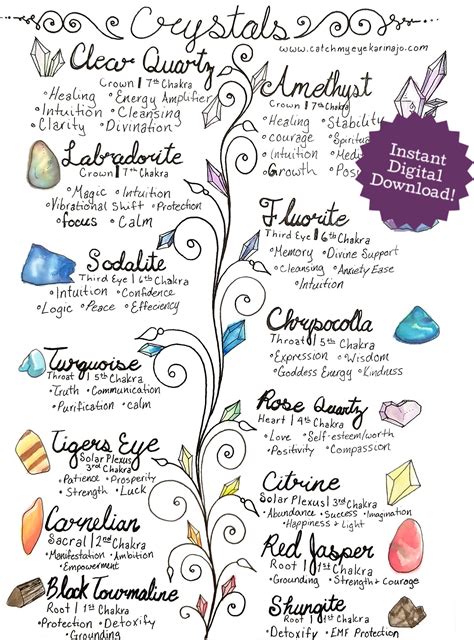 Crystals
www.catchmyeyekarinajo.com
Clear Quartz
Crown | 7th Chakra
• Healing • Energy Amplifier
• Intuition • Cleansing
• Clarity • Divination
Amethyst
Crown | 7th Chakra
• Healing • Stability
• courage
• Intuition
• Growth
Instant
Digital
Download!
Labradorite
Crown | 7th Chakra
• Magic • Intuition
• Vibrational Shift • Protection
• focus • Calm
Fluorite
Third Eye | 6th Chakra
• Memory • Divine Support
• Cleansing • Anxiety Ease
• Intuition
Sodalite
Third Eye | 6th Chakra
• Intuition • Confidence
• Logic • Peace • Effeciency
Chrysocolla
Throat | 5th Chakra
• Expression • Wisdom
• Goddess Energy • Kindness
Turquoise
Throat | 5th Chakra
• Truth • Communication
• Purification • calm
Rose Quartz
Heart | 4th Chakra
• Love • Self-esteem/worth
• Positivity • Compassion
Tigers Eye
Solar Plexus
3rd Chakra
• Patience • Prosperity
• Strength • Luck
Citrine
Solar Plexus | 3rd Chakra
• Abundance • Success • Imagination
• Happiness + Light
Carnelian
Sacral | 2nd Chakra
• Manifestation • Ambition
• Empowerment
Red Jasper
Root | 1st Chakra
• Grounding • Strength + Courage
Black Tourmaline
Root | 1st Chakra
• Protection • Detoxify
• Grounding
Shungite
Root | 1st Chakra
• Detoxify • EMF Protection